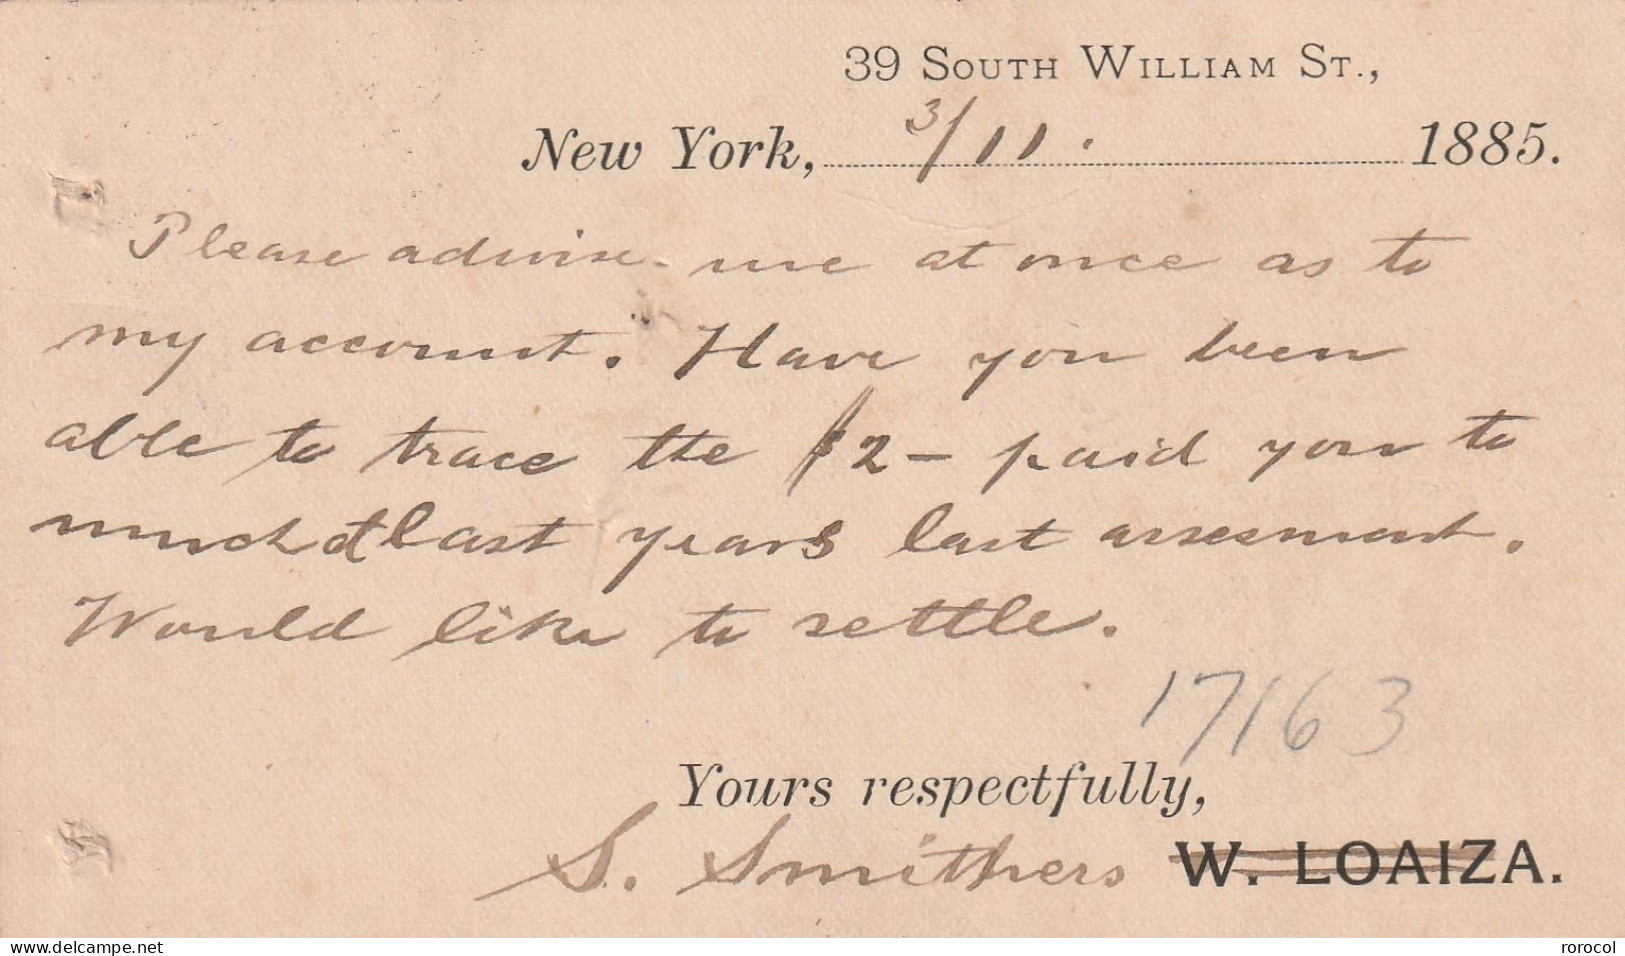 39 South William St.,
New York, 3/11. 1885.
Please advise me at once as to
my account. Have you been
able to trace the $2– paid you to
much last years last assesment.
Would like to settle.
17163
Yours respectfully,
S. Smithers W. LOAIZA.
www.delcampe.net
rorocol